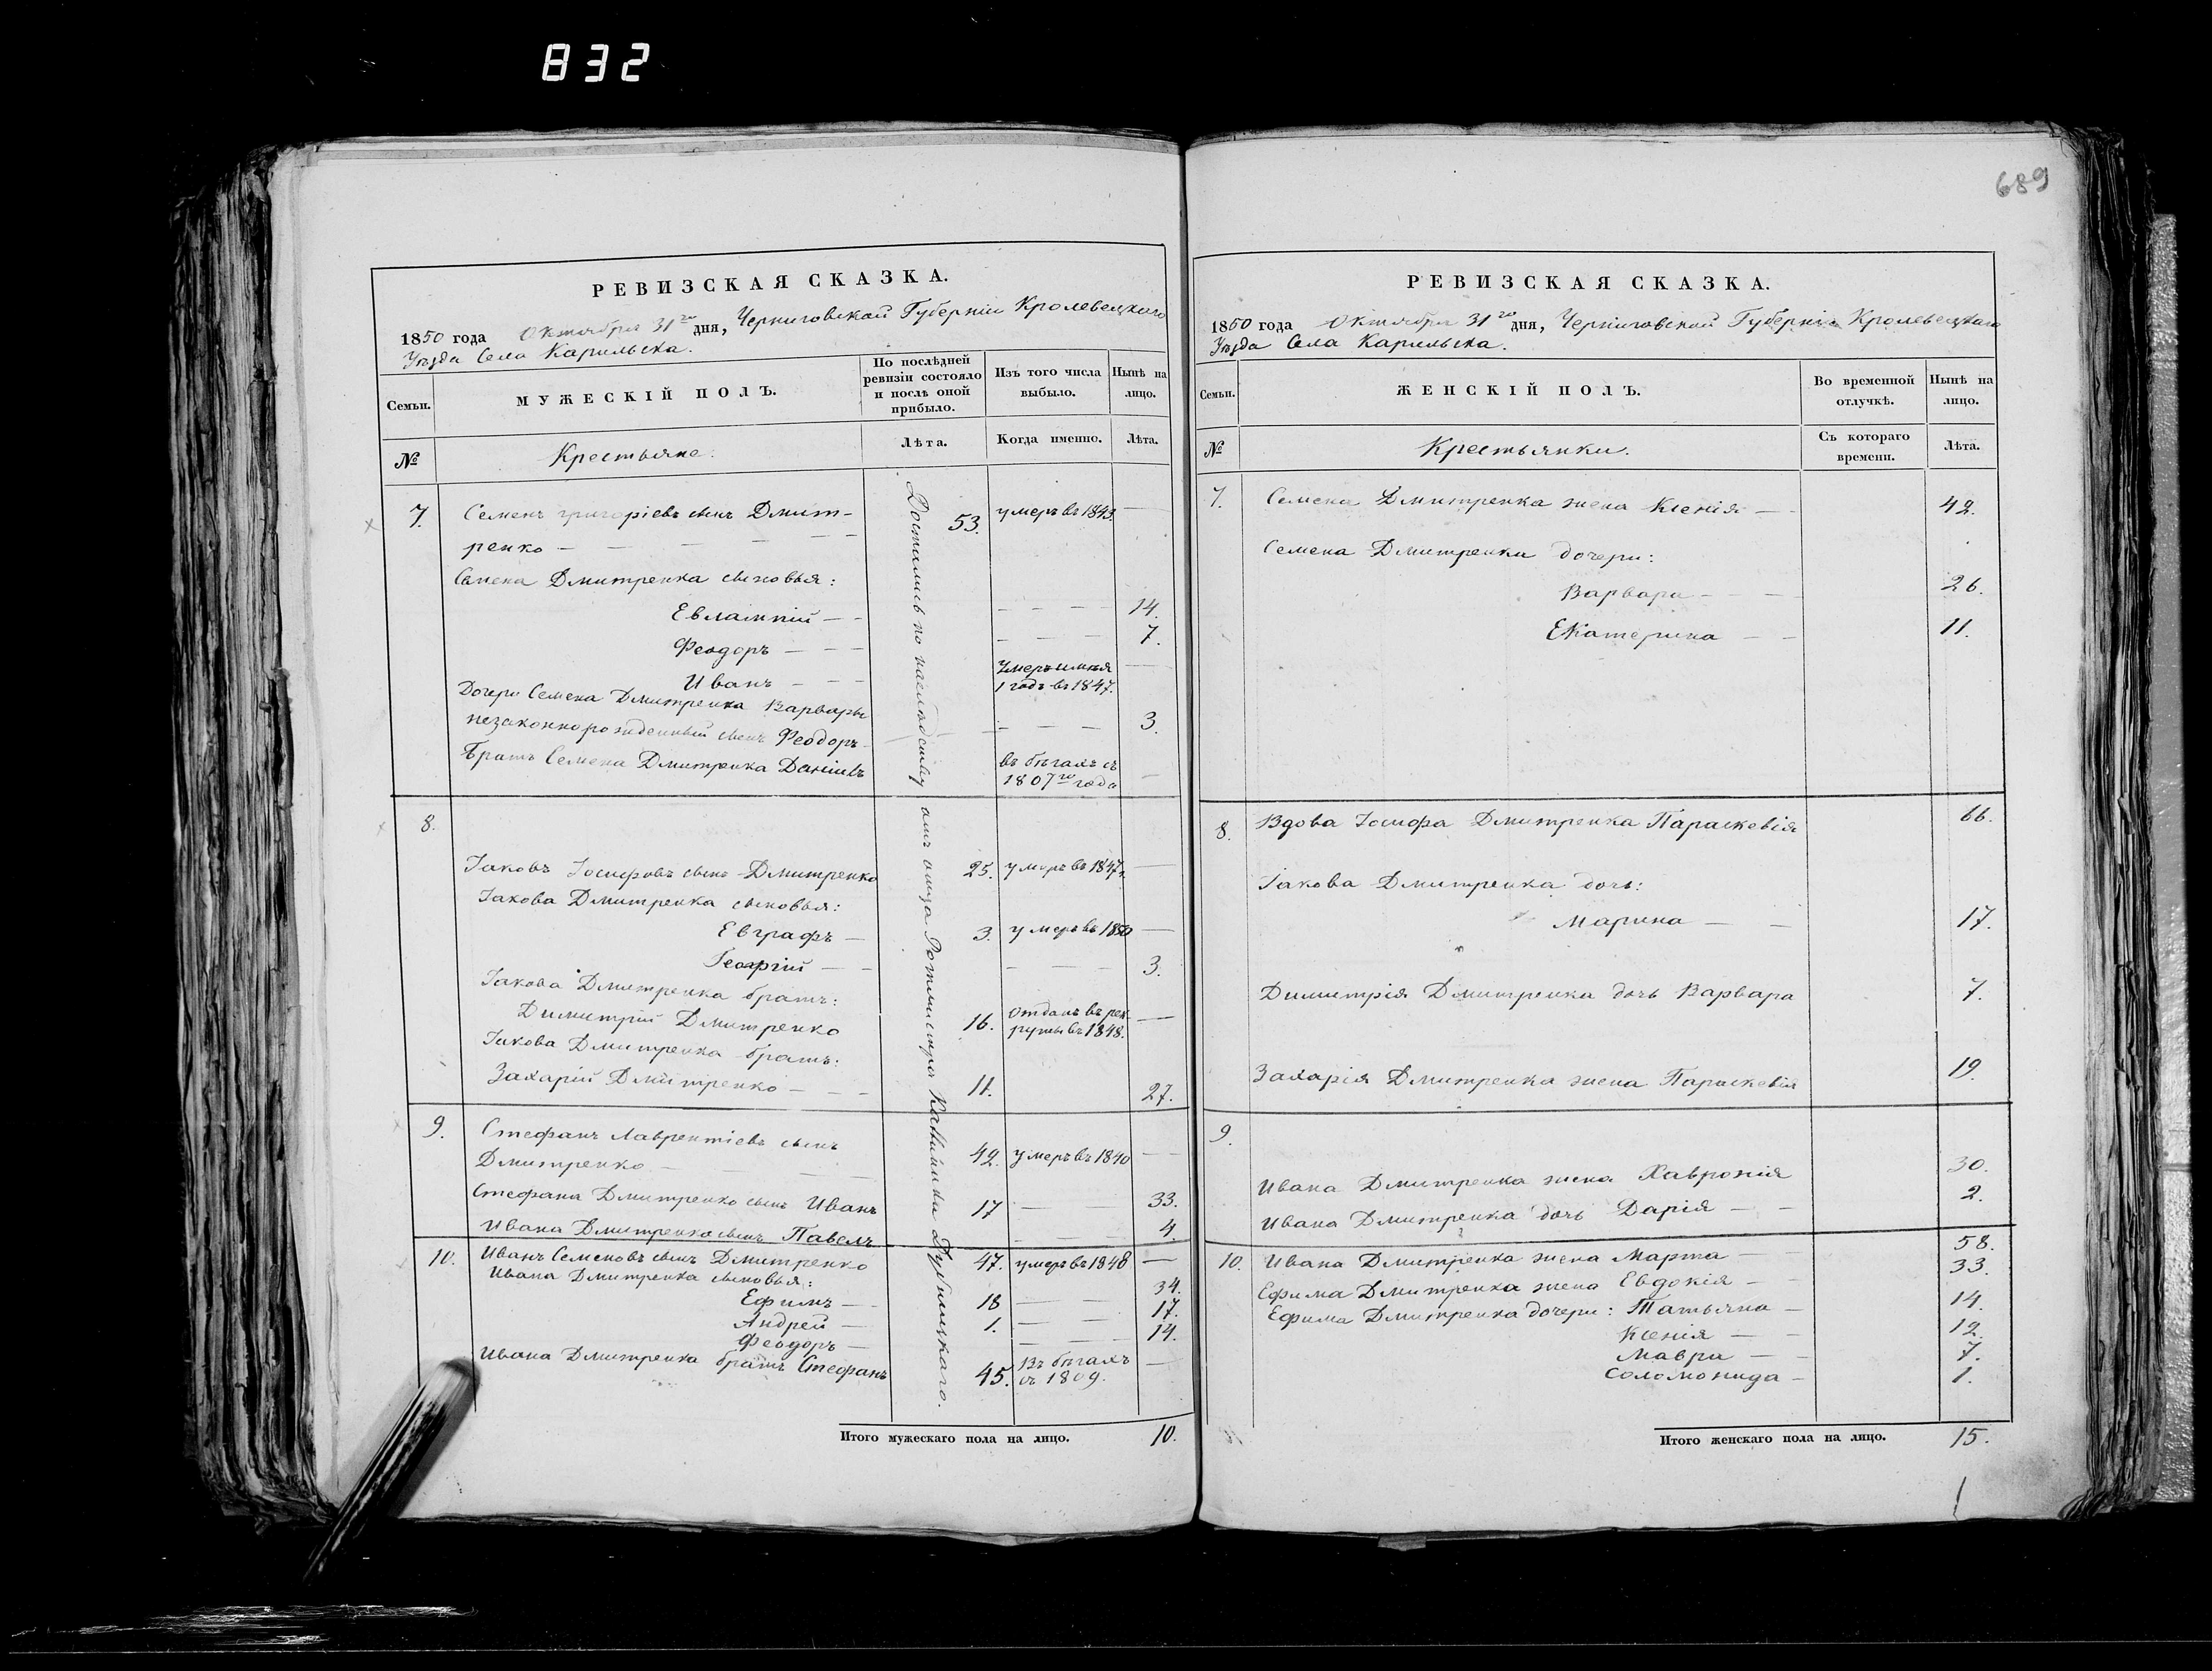 832
689
РЕВИЗСКАЯ СКАЗКА.
1850 года Октября 31го дня, Черниговской Губерніи Кролевецкаго
Уѣзда Села Карильска.
Семьи.
МУЖЕСКІЙ ПОЛЪ.
По послѣдней
ревизіи состояло
и послѣ оной
прибыло.
Изъ того числа
выбыло.
Нынѣ на
лицо.
№
Крестьяне.
Лѣта.
Когда именно.
Лѣта.
Достались по наслѣдству отъ отца Ротмистра
7. Семенъ Григоріевъ сынъ Дмит- 53. умеръ въ 1843. —
ренко — — — — —
Семена Дмитренка сыновья:
Евлампій — — — — — 14.
Феодоръ — — — — — — 7.
Иванъ — — — Умеръ имѣя —
1 годъ въ 1847.
Дочери Семена Дмитренка Варвары
незаконнорожденный сынъ Феодоръ — — — 3.
Братъ Семена Дмитренка Даніилъ въ бѣгахъ съ —
1807го года
8.
Іаковъ Іосифовъ сынъ Дмитренко 25. умеръ въ 1847. —
Іакова Дмитренка сыновья:
Евграфъ — 3. умеръ въ 1850 —
Георгій — — — — — 3.
Іакова Дмитренка братъ:
Димитрій Дмитренко 16. Отданъ въ рек- —
руты въ 1848.
Іакова Дмитренка братъ:
Захарій Дмитренко — — — 11. 27.
9. Стефанъ Лаврентіевъ сынъ
Дмитренко — — — 42. умеръ въ 1840 —
Стефана Дмитренко сынъ Иванъ 17 — — 33.
Ивана Дмитренко сынъ Павелъ — — — 4
10. Иванъ Семеновъ сынъ Дмитренко 47. умеръ въ 1848 —
Ивана Дмитренка сыновья:
Ефимъ — 18 — — — 34.
Андрей — 1. — — 17.
Феодоръ — — — — 14.
Ивана Дмитренка братъ Стефанъ 45. Въ бѣгахъ —
съ 1809.
Итого мужескаго пола на лицо. 10.
РЕВИЗСКАЯ СКАЗКА.
1850 года Октября 31го дня, Черниговской Губерніи Кролевецкаго
Уѣзда Села Карильска.
Семьи.
ЖЕНСКІЙ ПОЛЪ.
Во временной
отлучкѣ.
Нынѣ на
лицо.
№
Крестьянки.
Съ котораго
времени.
Лѣта.
7. Семена Дмитренка жена Ксенія — 42.
Семена Дмитренки дочери:
Варвара — — — 26.
Екатерина — — 11.
8. Вдова Іосифа Дмитренка Параскевія 66.
Іакова Дмитренка дочь:
Марина — — 17.
Димитрія Дмитренка дочь Варвара 7.
Захарія Дмитренка жена Параскевія 19.
9.
Ивана Дмитренка жена Хавронія 30.
Ивана Дмитренка дочь Дарія — — 2.
10. Ивана Дмитренка жена Марта — 58.
Ефима Дмитренка жена Евдокія — — 33.
Ефима Дмитренка дочери: Татьяна — 14.
Ксенія — — 12.
Мавра — — 7.
Соломонида — 1.
Итого женскаго пола на лицо. 15.